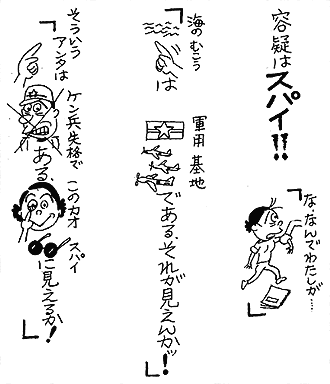 容疑はスパイ!!
「ななんでわたしが…」
「海のむこうは
軍用基地である、それが見えんかッ!」
「そういうアンタは
ケン兵失格である、このカオスパイに見えるか!」